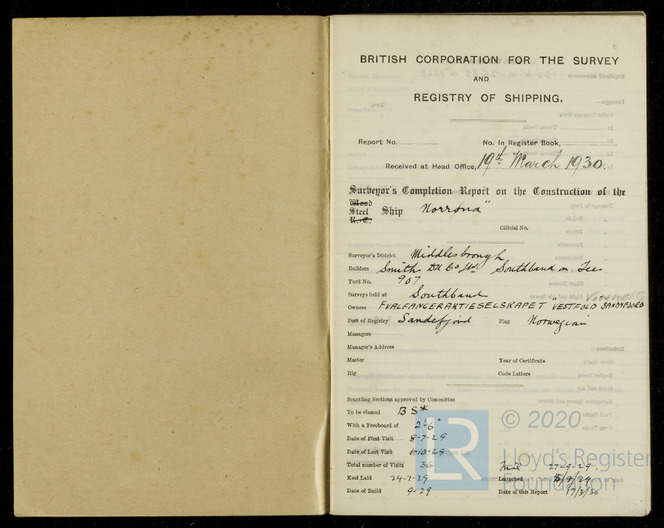 BRITISH CORPORATION FOR THE SURVEY
AND
REGISTRY OF SHIPPING.
Report No.
No. in Register Book,
Received at Head Office, 19th March 1930.
Surveyor's Completion Report on the Construction of the
Wood
Steel Ship "Norrona"
R.-C.
Official No.
Surveyor's District Middlesbrough
Builders Smiths Southbank on Tees
Yard No. 907
Surveys held at Southbank
Owners FVALFANGERAKTIESELSKAPET "VESTFOLD SANDEFJORD
Port of Registry Sandefjord Flag Norwegian
Managers
Manager's Address
Master Year of Certificate
Rig Code Letters
Scantling Sections approved by Committee
To be classed BS*
With a Freeboard of 2'-6"
Date of First Visit 8-7-29
Date of Last Visit 1-10-29
Total number of Visits 27-9-29
Keel Laid 24-7-29 Launched
Date of Build 9-29 Date of this Report 17/3/30
LR
© 2020
Lloyd's Register
Foundation